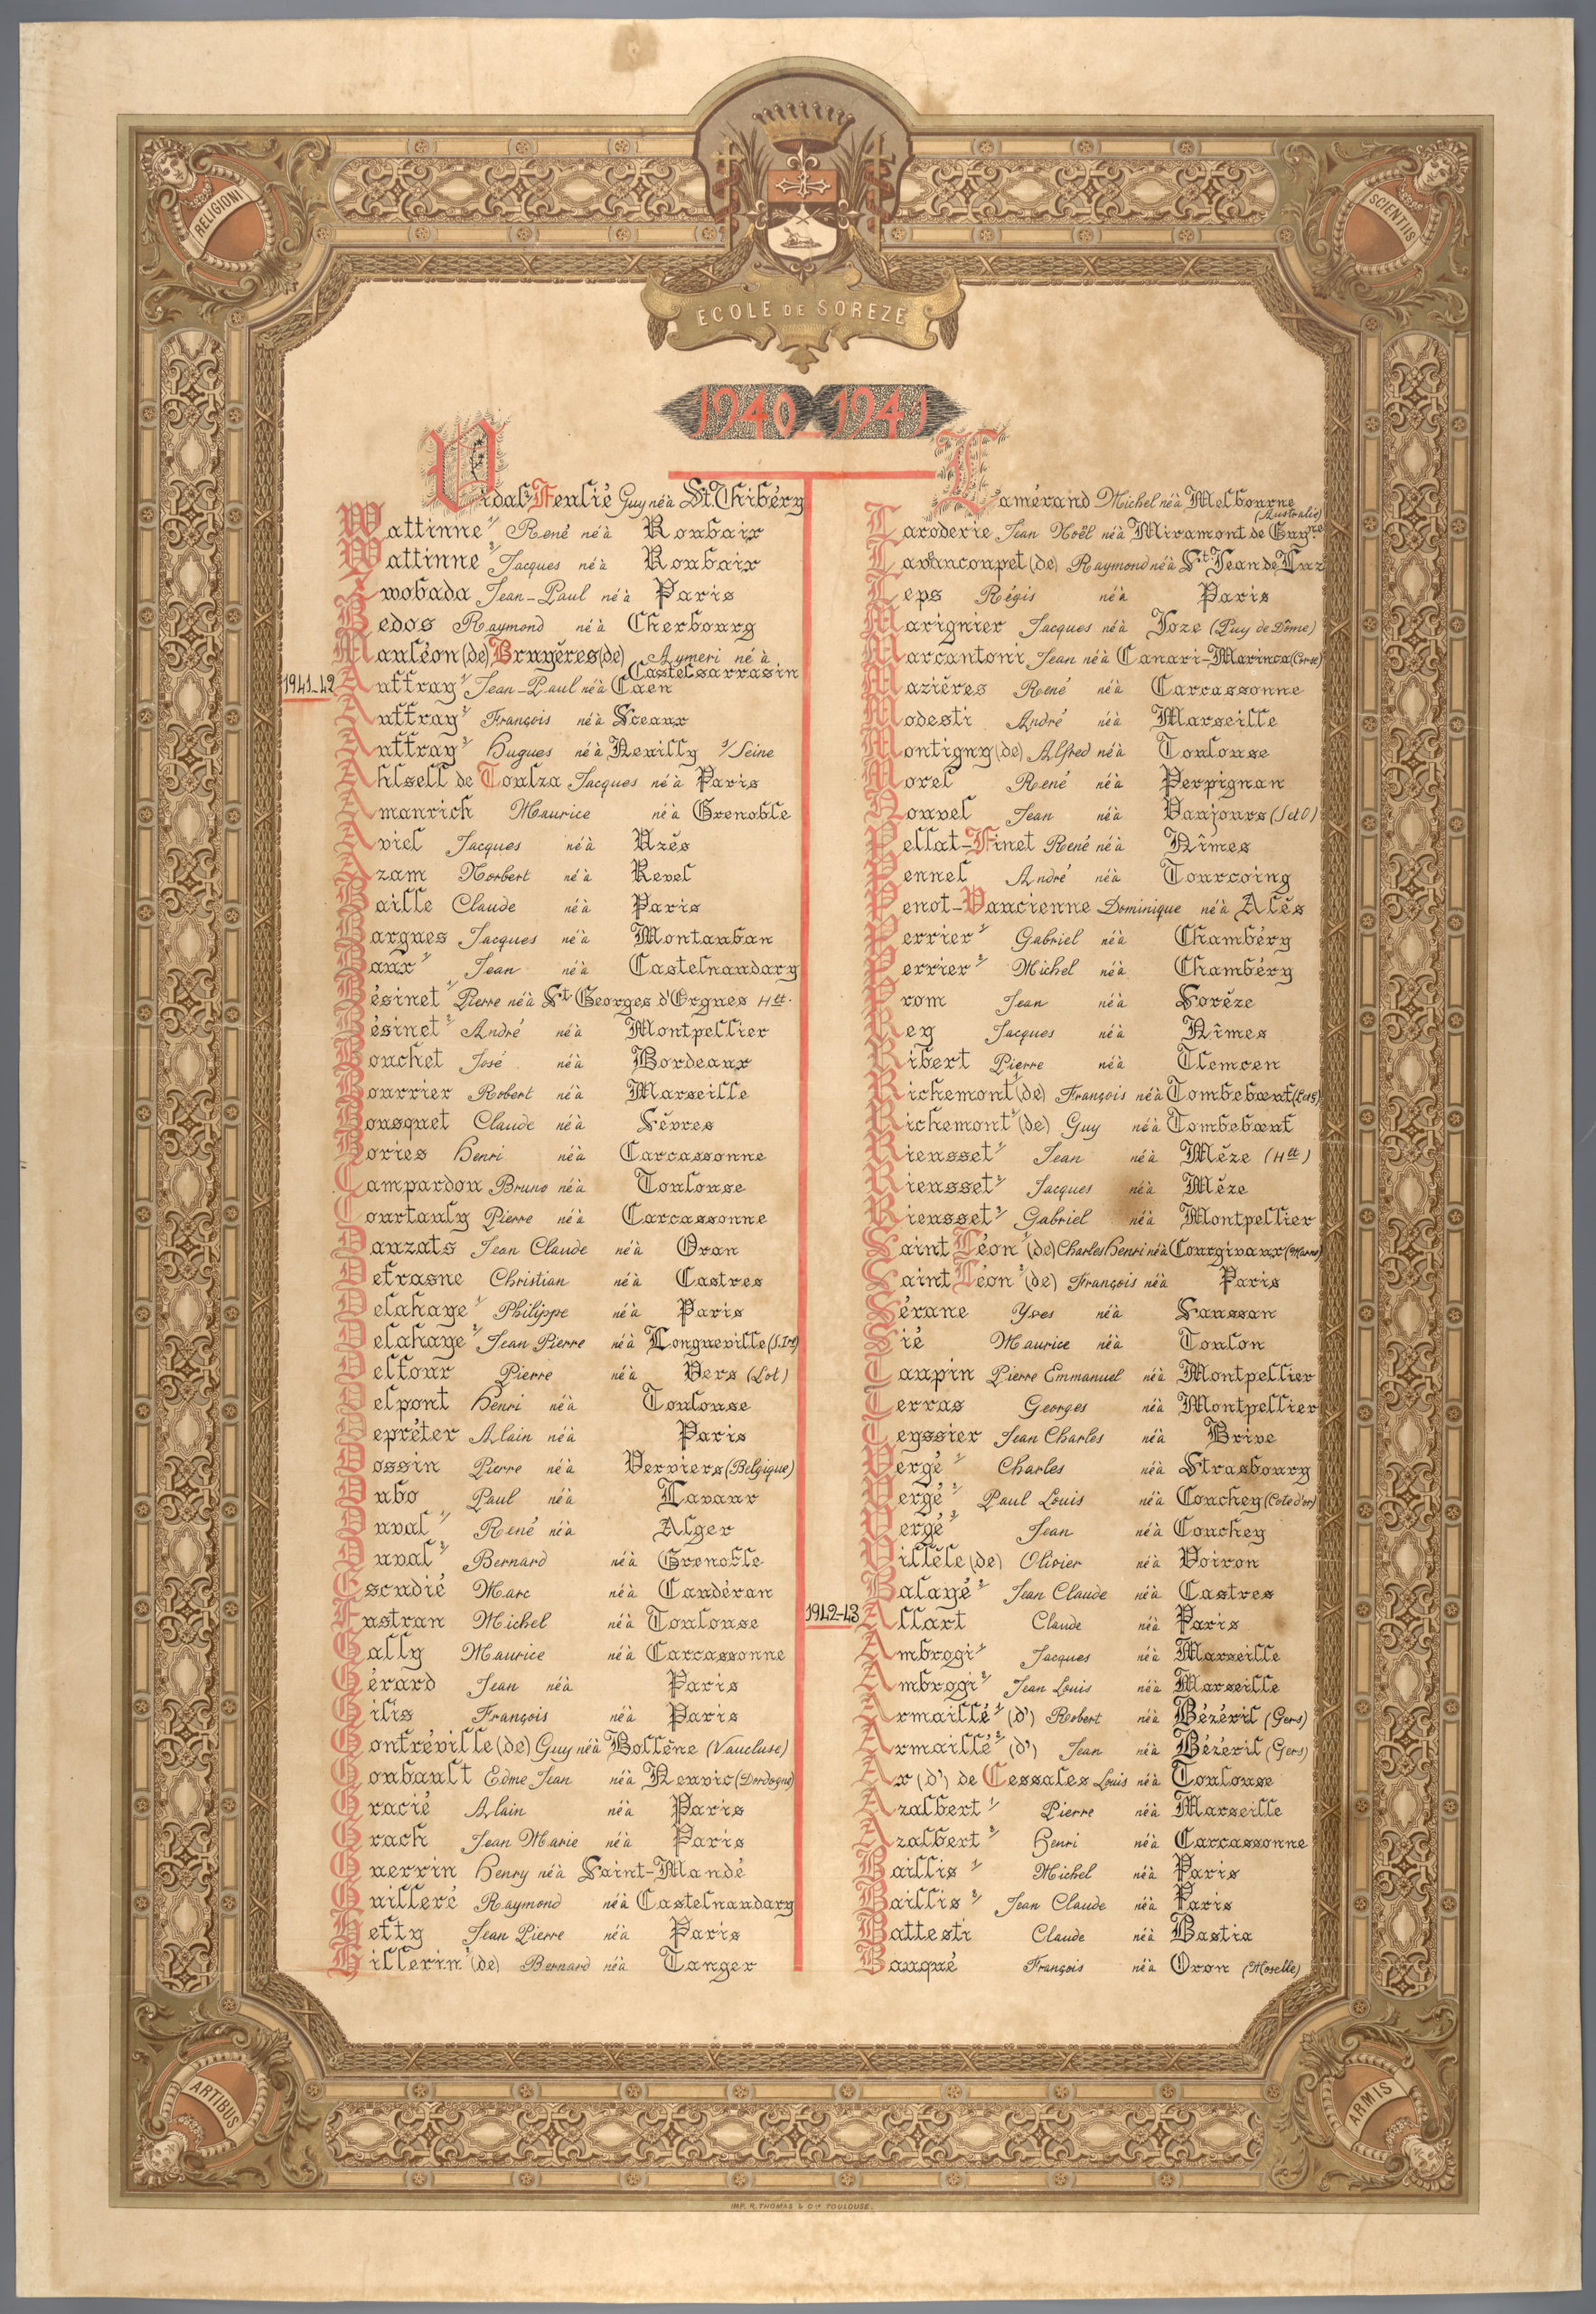 RELIGIONI
SCIENTIIS
ECOLE DE SOREZE
1940-1941
Vidal-Feulié Guy né à St. Thibéry
Wattinne 1/ René né à Roubaix
Wattinne 2/ Jacques né à Roubaix
Zwobada Jean-Paul né à Paris
Bedos Raymond né à Cherbourg
Mauléon (de) Bruyères (de) Aymeri né à
Castelsarrasin
1941-42 Auffray 1/ Jean-Paul né à Caen
Auffray 2/ François né à Sceaux
Auffray 3/ Hugues né à Neuilly s/Seine
Ahlsell de Toulza Jacques né à Paris
Amanrich Maurice né à Grenoble
Aviel Jacques né à Uzès
Azam Norbert né à Revel
Baille Claude né à Paris
Bargues Jacques né à Montauban
Baux 1/ Jean né à Castelnaudary
Bésinet 1/ Pierre né à St. Georges d'Orgues Hlt.
Bésinet 2/ André né à Montpellier
Bouchet José né à Bordeaux
Bourrier Robert né à Marseille
Bousquet Claude né à Sèvres
Bories Henri né à Carcassonne
Campardou Bruno né à Toulouse
Courtauly Pierre né à Carcassonne
Dauzats Jean Claude né à Oran
Defrasne Christian né à Castres
Delahaye 1/ Philippe né à Paris
Delahaye 2/ Jean Pierre né à Longueville (S. Inf)
Delfour Pierre né à Vers (Lot)
Delpont Henri né à Toulouse
Depréter Alain né à Paris
Dossin Pierre né à Verviers (Belgique)
Dubo Paul né à Lavaur
Duval 1/ René né à Alger
Duval 2/ Bernard né à Grenoble
Escudié Marc né à Caudéran
Fustran Michel né à Toulouse
Gally Maurice né à Carcassonne
Gérard Jean né à Paris
Gilis François né à Paris
Gontréville (de) Guy né à Bollène (Vaucluse)
Goubault Edme Jean né à Neuvic (Dordogne)
Gracié Alain né à Paris
Grach Jean Marie né à Paris
Guerrin Henry né à Saint-Mandé
Guilleré Raymond né à Castelnaudary
Hetty Jean Pierre né à Paris
Hillerin 1/ (de) Bernard né à Tanger
Lamérand Michel né à Melbourne
(Australie)
Laroderie Jean Noël né à Miramont de Guyne
Lavancoupet (de) Raymond né à St. Jean de Luz
Leps Régis né à Paris
Marignier Jacques né à Joze (Puy de Dôme)
Marcantoni Jean né à Canari-Marinca (Corse)
Mazières René né à Carcassonne
Modesti André né à Marseille
Montigny (de) Alfred né à Toulouse
Morel René né à Perpignan
Nouvel Jean né à Vaujours (S et O)
Pellat-Finet René né à Nîmes
Pennel André né à Tourcoing
Penot-Vaucienne Dominique né à Alès
Perrier 1/ Gabriel né à Chambéry
Perrier 2/ Michel né à Chambéry
Prom Jean né à Sorèze
Rey Jacques né à Nîmes
Ribert Pierre né à Tlemcen
Richemont 1/ (de) François né à Tombeboeuf (L et G)
Richemont 2/ (de) Guy né à Tombeboeuf
Rieusset 1/ Jean né à Mèze (Hlt)
Rieusset 2/ Jacques né à Mèze
Rieusset 3/ Gabriel né à Montpellier
Saint Léon 1/ (de) Charles Henri né à Courgivaux (Marne)
Saint Léon 2/ (de) François né à Paris
Sérane Yves né à Saussan
Sié Maurice né à Toulon
Taupin Pierre Emmanuel né à Montpellier
Terras Georges né à Montpellier
Teyssier Jean Charles né à Brive
Vergé 1/ Charles né à Strasbourg
Vergé 2/ Paul Louis né à Couchey (Cote d'or)
Vergé 3/ Jean né à Couchey
Villèle (de) Olivier né à Voiron
Balagé 2/ Jean Claude né à Castres
1942-43 Allart Claude né à Paris
Ambrogi 1/ Jacques né à Marseille
Ambrogi 2/ Jean Louis né à Marseille
Armaillé 1/ (d') Robert né à Bézéril (Gers)
Armaillé 2/ (d') Jean né à Bézéril (Gers)
Ax (d') de Cessales Louis né à Toulouse
Azalbert 1/ Pierre né à Marseille
Azalbert 2/ Henri né à Carcassonne
Baillis 1/ Michel né à Paris
Baillis 2/ Jean Claude né à Paris
Battesti Claude né à Bastia
Bauqué François né à Oron (Moselle)
ARTIBUS
ARMIS
IMP. R. THOMAS & Cie TOULOUSE.